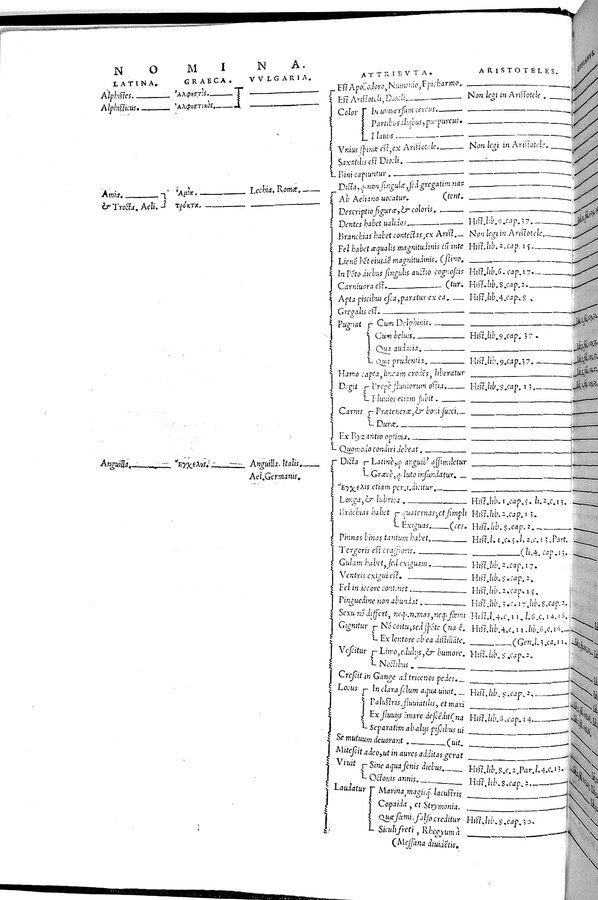 NOMINA.
LATINA. GRAECA. VVLGARIA. ATTRIBVTA. ARISTOTELES.
Est Apollodoro, Numenio, Epicharmo.
Alphistes. Ἀλφιστὶς. Est Aristoteli, Diocli. Non legi in Aristotele.
Alphisticus. Ἀλφιστικὸς. Color In vniuersum cereus.
Partibus aliquibus, purpureus.
Flauus.
Vnius spinæ est, ex Aristotele. Non legi in Aristotele.
Saxatilis est Diocli.
Bini capiuntur.
Dicta, q̀ non singulæ, sed gregatim nat
Amia. Ἀμία. Lechia. Romæ. Ab Aeliano uocatur. (tent.
& Trocta. Aeli. τρώκτα. Descriptio figuræ, & coloris.
Dentes habet ualidos. Hist. lib. 9. cap. 37.
Branchias habet contectas, ex Arist. Non legi in Aristotele.
Fel habet æqualis magnitudinis cũ inte Hist. lib. 2. cap. 15.
Lienẽ hẽt eiusdẽ magnitudinis. (stino.
In Põto diebus singulis auctio cognoscis Hist. lib. 6. cap. 17.
Carniuora est. (tur. Hist. lib. 8. cap. 2.
Apta piscibus esca, paratur ex ea. Hist. lib. 4. cap. 8.
Gregalis est.
Pugnat Cum Delphinis.
Cum beluis. Hist. lib. 9. cap. 37.
Qua audacia.
Qua prudentia. Hist. lib. 9. cap. 37.
Hamo capta, lineam erodẽs, liberatur
Degit Propè fluuiorum ostia. Hist. lib. 8. cap. 13.
Fluuios etiam subit.
Carnis Præteneræ, & boni succi.
Duræ.
Ex Byzantio optima.
Quomodo condiri debeat.
Anguilla. Ἔγχελις. Anguilla. Italis. Dicta Latinè, q̀ angui assimiletur
Ael. Germanis. Græcè, q̀ luto infundatur.
Ἔγχελις etiam per ι. dicitur.
Longa, & lubrica. Hist. lib. 1. cap. 5. li. 2. c. 13.
Brãchias habet quaternas, et simpli Hist. lib. 2. cap. 13.
Exiguas. (ces. Hist. lib. 8. cap. 2.
Pinnas binas tantum habet. Hist. l. 1. c. 5. l. 2. c. 13. Part.
Tergoris est crassioris. (li. 4. cap. 13.
Gulam habet, sed exiguam. Hist. lib. 2. cap. 17.
Ventris exigui est. Hist. lib. 8. cap. 2.
Fel in iecore continet Hist. lib. 2. cap. 15.
Pinguedine non abundat. Hist. lib. 3. c. 17. lib. 8. cap. 2.
Sexu nõ differt, neq. n. mas, neq. fœmi Hist. l. 4. c. 11. l. 6. c. 14. 16.
Gignitur Nõ coitu, sed spõte (na ẽ. Hist. lib. 4. c. 11. lib. 6. c. 16.
Ex lentore ab ea distillãte. (Gen. l. 3. ca. 11.
Vescitur Limo, edulijs, & humore. Hist. lib. 8. cap. 2.
Noctibus.
Crescit in Gange ad tricenos pedes.
Locus In clara solum aqua uiuit. Hist. lib. 8. cap. 2.
Palustris, fluuiatilis, et mari
Ex fluuijs ĩ mare descẽdit (na Hist. lib. 6. cap. 14.
Separatim ab alijs piscibus ui
Se mutuum deuorant. (uit.
Mitescit adeo, ut in aures additas gerat
Viuit Sine aqua senis diebus. Hist. lib. 8. c. 2. Par. l. 4. c. 13.
Octonis annis. Hist. lib. 8. cap. 2.
Laudatur Marina, magisq̀ lacustris
Copaida, et Strymonia.
Quæ fœmi. falso creditur Hist. lib. 8. cap. 30.
Siculi freti, Rhegyum à
(Messana diuidẽtis.